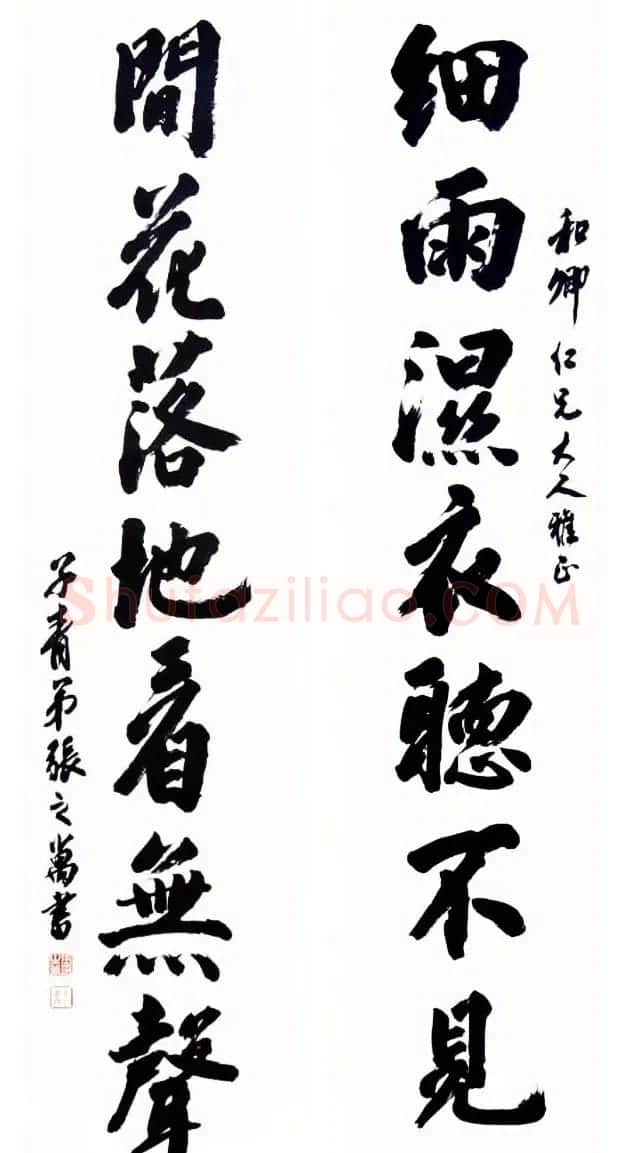 和卿仁兄大人雅正
細雨濕衣聽不見
間花落地看無聲
子青弟張之萬書
Shufaziliao.COM